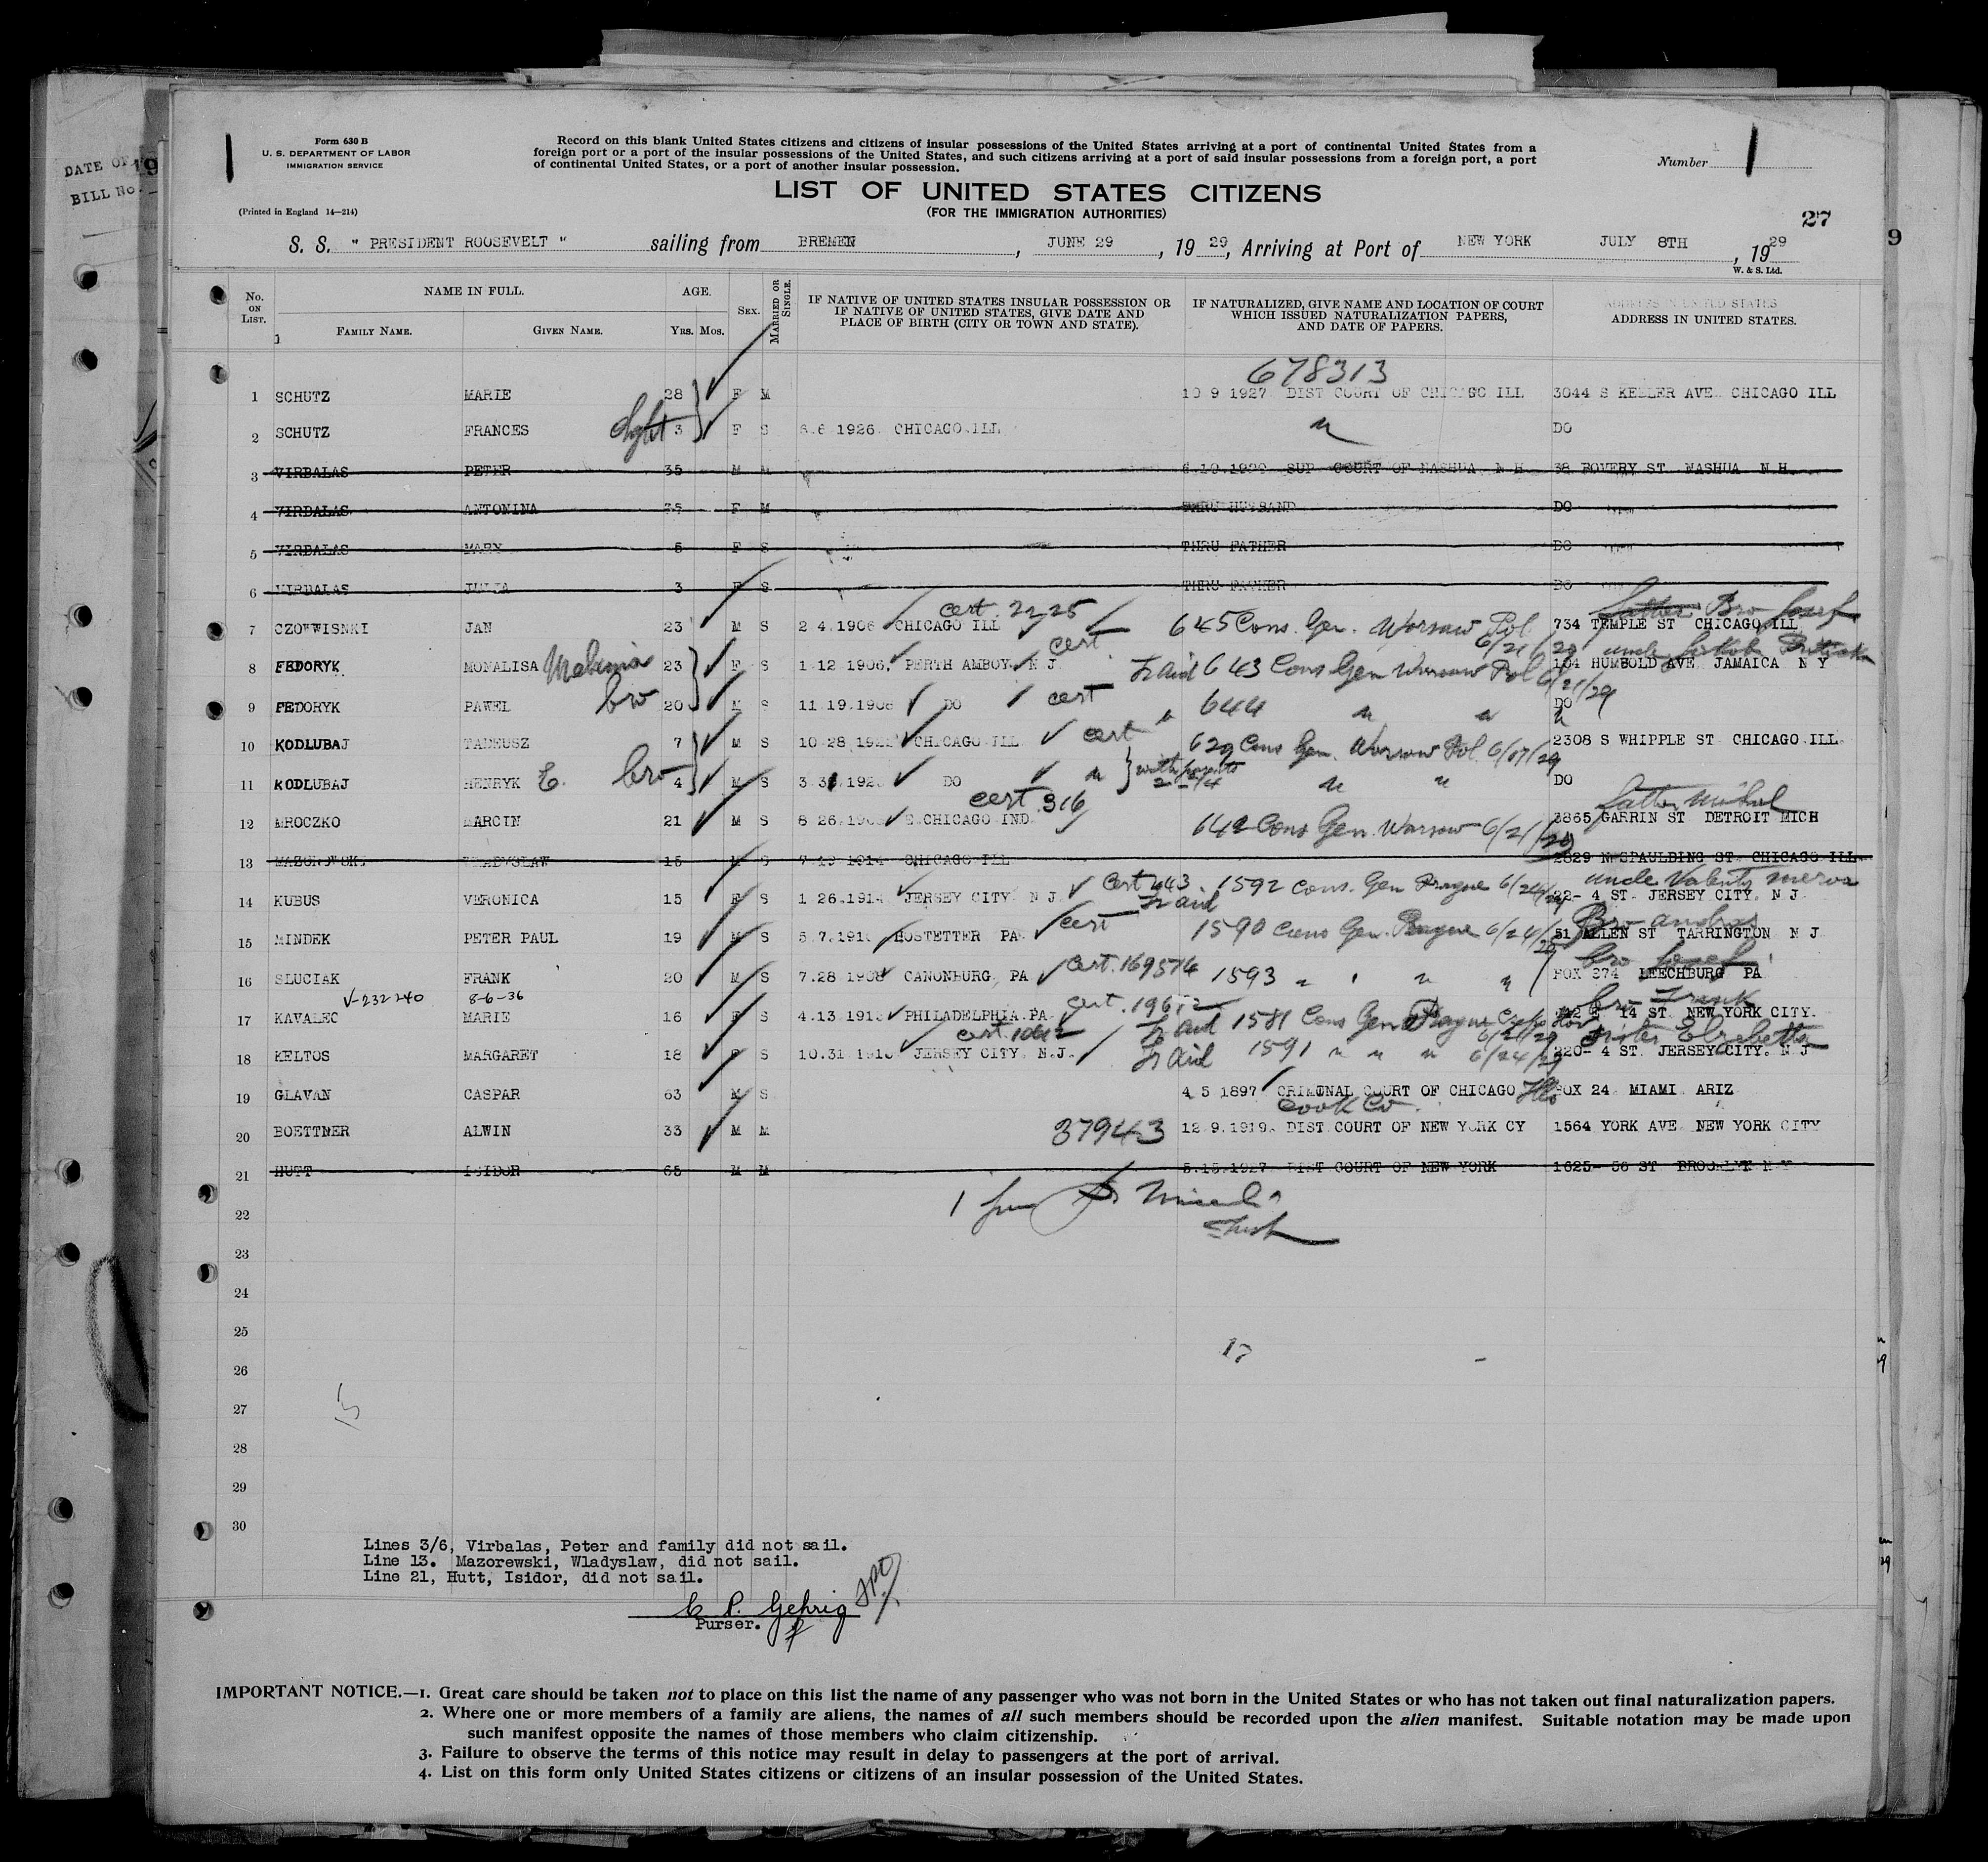 DATE OF
BILL No.
19
Form 630 B
U. S. DEPARTMENT OF LABOR
IMMIGRATION SERVICE
(Printed in England 14—214)
Record on this blank United States citizens and citizens of insular possessions of the United States arriving at a port of continental United States from a
foreign port or a port of the insular possessions of the United States, and such citizens arriving at a port of said insular possessions from a foreign port, a port
of continental United States, or a port of another insular possession.
Number
LIST OF UNITED STATES CITIZENS
(FOR THE IMMIGRATION AUTHORITIES)
27
9
S. S. " PRESIDENT ROOSEVELT " sailing from BREMEN, JUNE 29, 1929, Arriving at Port of NEW YORK JULY 8TH, 1929
W. & S. Ltd.
No. ON LIST. NAME IN FULL. AGE. SEX. MARRIED OR SINGLE.
FAMILY NAME. GIVEN NAME. YRS. MOS.
IF NATIVE OF UNITED STATES INSULAR POSSESSION OR
IF NATIVE OF UNITED STATES, GIVE DATE AND
PLACE OF BIRTH (CITY OR TOWN AND STATE).
IF NATURALIZED, GIVE NAME AND LOCATION OF COURT
WHICH ISSUED NATURALIZATION PAPERS,
AND DATE OF PAPERS.
ADDRESS IN UNITED STATES
ADDRESS IN UNITED STATES.
678313
1 SCHUTZ MARIE 28 F M 10 9 1927 DIST COURT OF CHICAGO ILL 3044 S KEELER AVE. CHICAGO ILL
2 SCHUTZ FRANCES 3 F S 6.6 1926. CHICAGO.ILL " DO
3 VIRBALAS PETER 35 M M SUP COURT OF NASHUA N H 38 BOVERY ST NASHUA N.H.
4 VIRBALAS ANTONINA 35 F M THRU HUSBAND DO
5 VIRBALAS MARY 5 F S THRU FATHER DO
6 VIRBALAS JULIA 3 F S THRU FATHER DO
cert. 2225 father Bro Josef
7 CZOWWISNKI JAN 23 M S 2 4.1906 CHICAGO ILL 645 Cons. Gen. Warsaw Pol 6/21/29 734 TEMPLE ST CHICAGO ILL
cert uncle
8 FEDORYK MONALISA Melania 23 F S 1 12 1906. PERTH AMBOY N J. Tr aid 643 Cons Gen Warsaw Pol 6/21/29 104 HUMBOLD AVE JAMAICA N Y
9 FEDORYK PAWEL bro 20 M S 11.19.1908 DO cert " 644 " " DO
10 KODLUBAJ TADEUSZ 7 M S 10 28 192 CHICAGO ILL cert 629 Cons Gen. Warsaw Pol. 6/17/29 2308 S WHIPPLE ST CHICAGO.ILL.
11 KODLUBAJ HENRYK E. bro 4 M S DO " with parents " " DO
cert 316 father Michal
12 MROCZKO MARCIN 21 M S 8 26. E.CHICAGO IND. 642 Cons Gen. Warsaw 6/21/29 3865 GARRIN ST DETROIT MICH
13 WLADYSLAW 15 M S 7.13 1914 CHICAGO ILL 2829 N SPAULDING ST CHICAGO ILL
uncle Valenty
14 KUBUS VERONICA 15 F S 1 26.1914 JERSEY CITY. N J. Cert 443 Tr aid 1592 Cons. Gen Prague 6/24/29 22- 4 ST. JERSEY CITY. N J.
Bro
15 MINDEK PETER PAUL 19 M S HOSTETTER PA cert 1590 Cons Gen. Prague 6/24/29 51 ALLEN ST TARRINGTON N J
bro Josef
16 SLUCIAK FRANK 20 M S 7.28 1908 CANONBURG, PA cert. 169576 1593 " " " " BOX 274 LEECHBURG PA
V-232240 8-6-36 bro Frank
17 KAVALEC MARIE 16 F S 4.13 1913 PHILADELPHIA.PA. Tr aid 1581 Cons Gen Prague 6/21/29 14 ST. NEW YORK CITY.
cert. 10642 sister Elizabetta
18 KELTOS MARGARET 18 F S 10.31 1910 JERSEY CITY. N.J. Tr aid 1591 " " " 6/24/29 220- 4 ST. JERSEY CITY. N J
19 GLAVAN CASPAR 63 M S 4 5 1897 CRIMINAL COURT OF CHICAGO Ills BOX 24 MIAMI ARIZ
Cook Co.
20 BOETTNER ALWIN 33 M M 37943 12.9.1919. DIST COURT OF NEW YORK CY 1564 YORK AVE. NEW YORK CITY
21 HUTT ISIDOR 65 M M 5.15.1927 DIST COURT OF NEW YORK 1625- 56 ST BROOKLYN N Y
22
23
24
25
26
27
28
29
30
17
Lines 3/6, Virbalas, Peter and family did not sail.
Line 13. Mazorewski, Wladyslaw, did not sail.
Line 21, Hutt, Isidor, did not sail.
C P. Gehrig
Purser.
IMPORTANT NOTICE.—1. Great care should be taken not to place on this list the name of any passenger who was not born in the United States or who has not taken out final naturalization papers.
2. Where one or more members of a family are aliens, the names of all such members should be recorded upon the alien manifest. Suitable notation may be made upon
such manifest opposite the names of those members who claim citizenship.
3. Failure to observe the terms of this notice may result in delay to passengers at the port of arrival.
4. List on this form only United States citizens or citizens of an insular possession of the United States.